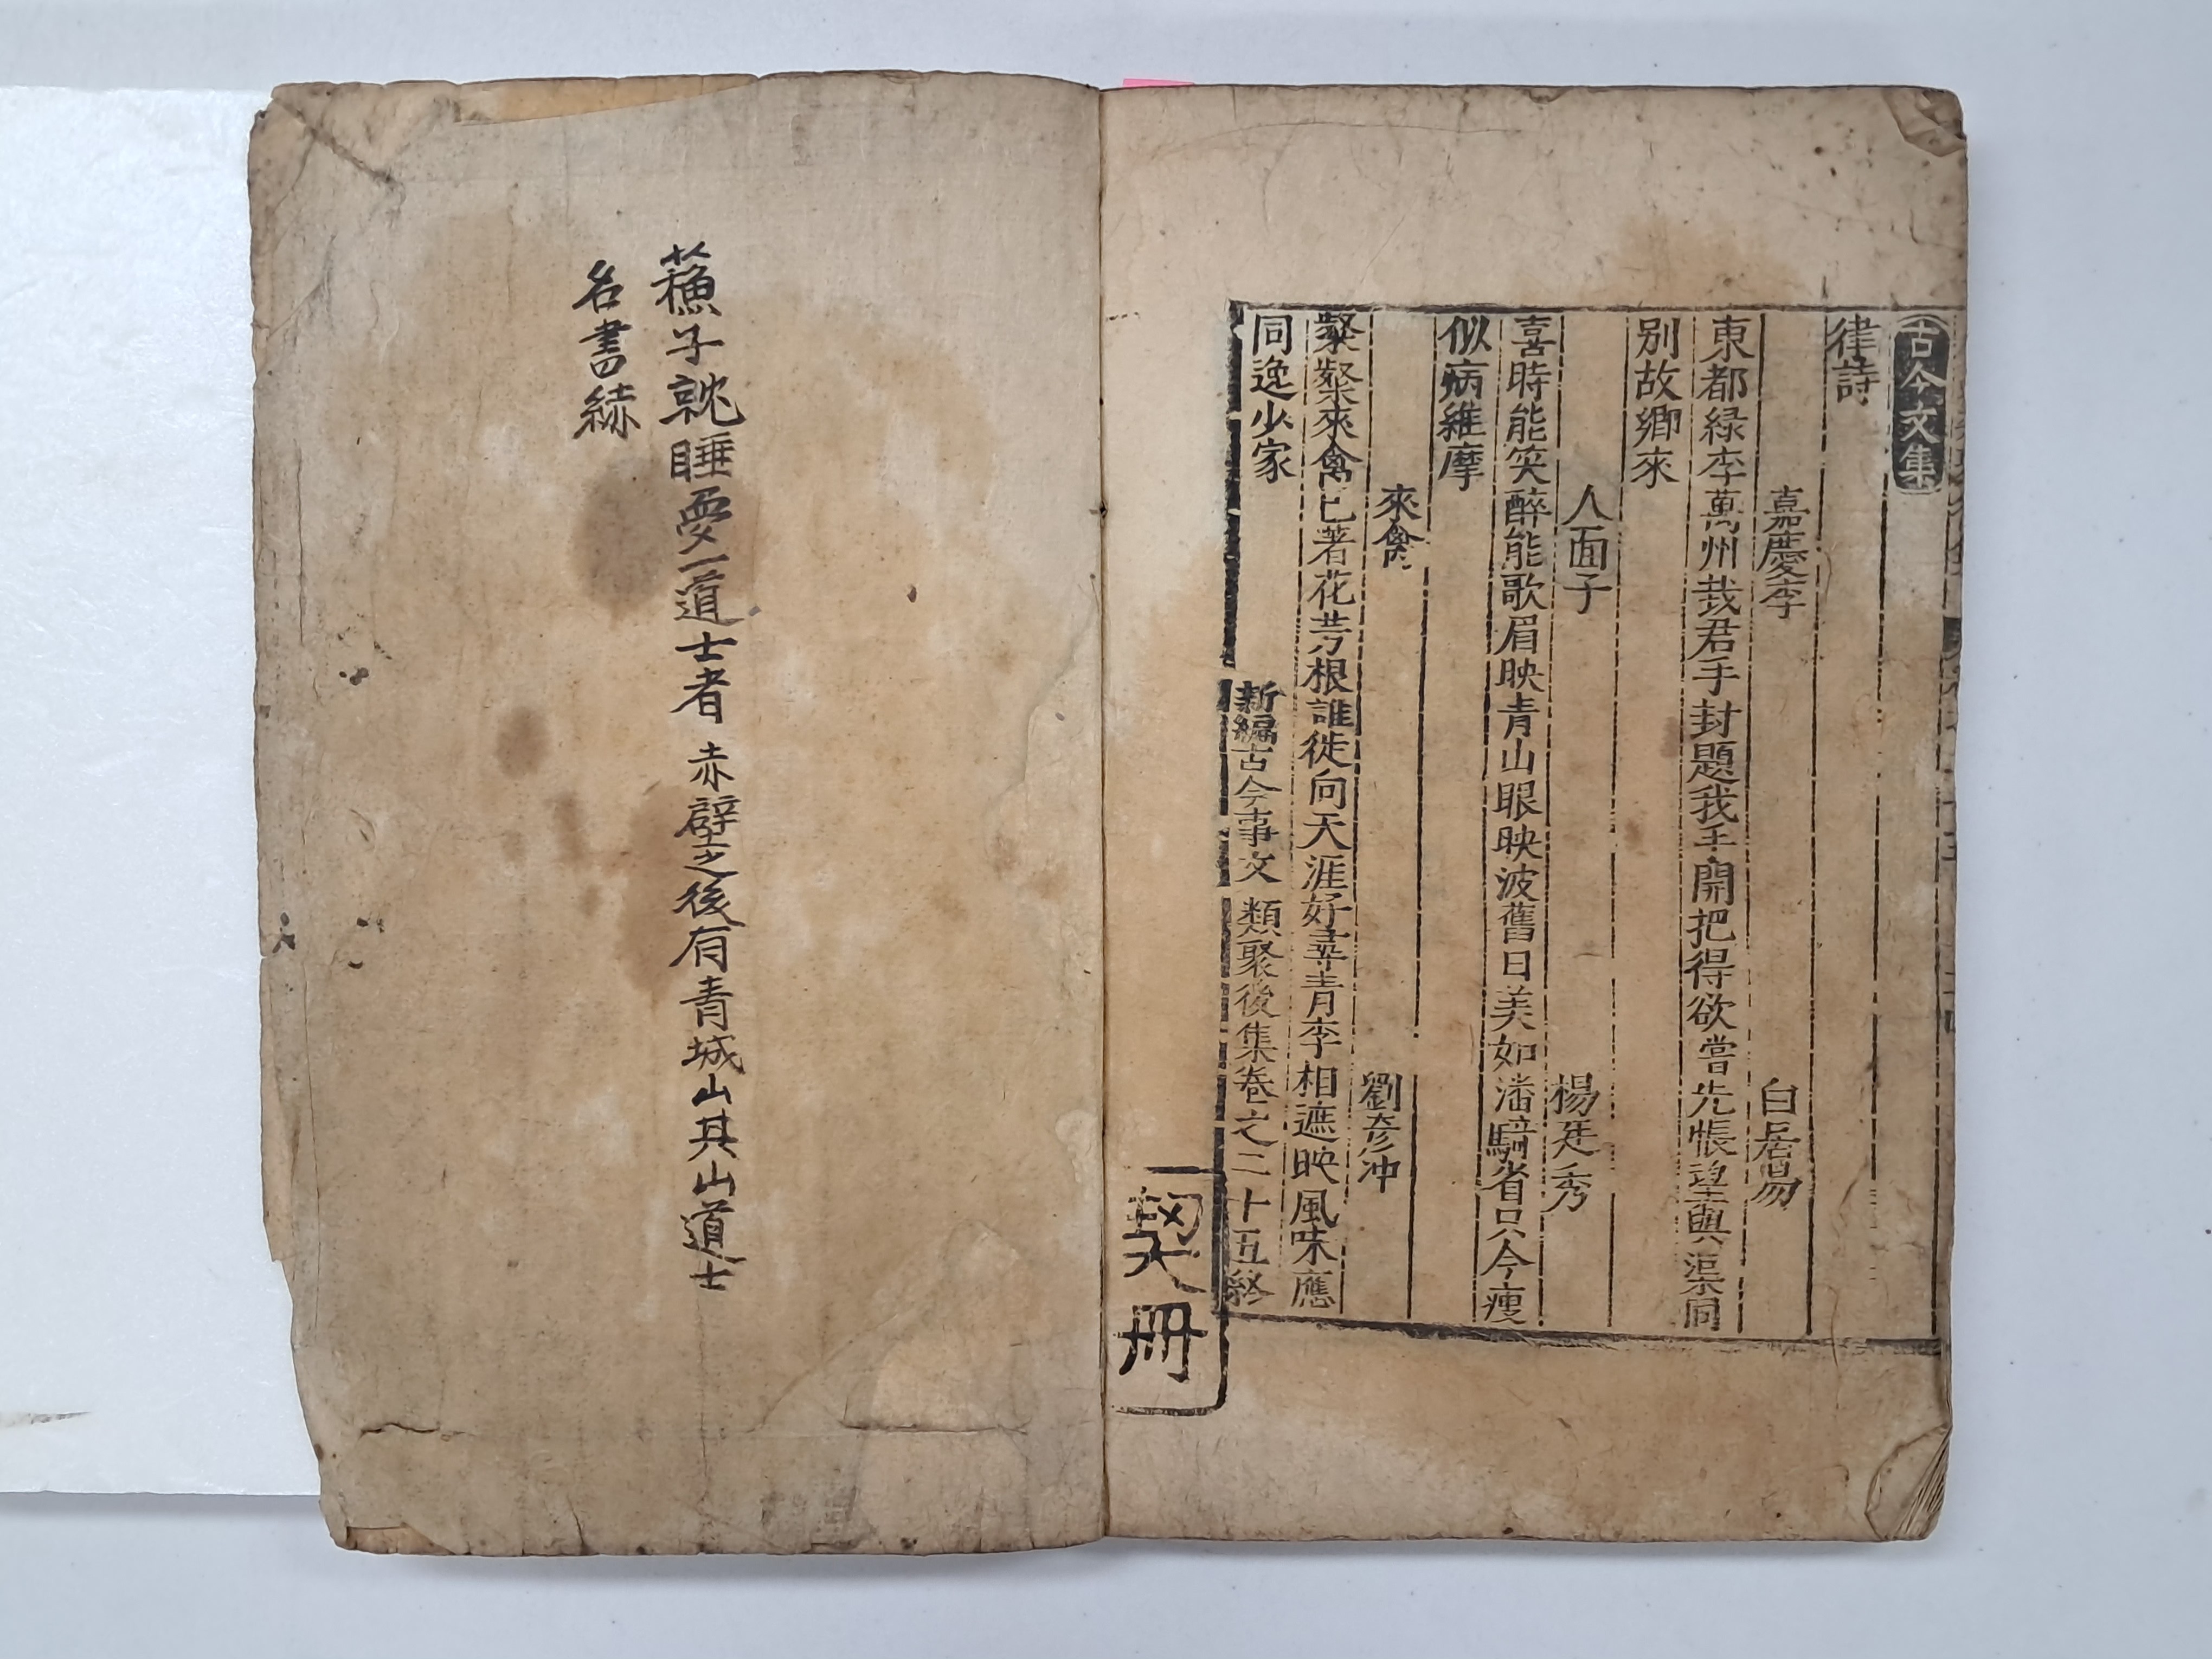 古今文集
律詩
嘉慶李 白居易
東都緑李萬州栽君手封題我手開把得欲嘗先悵望與渠同
别故鄉來
人面子 楊廷秀
喜時能笑醉能歌眉映青山眼映波舊日美如潘騎省只今瘦
似病維摩
來禽 劉彦冲
粲粲來禽已著花芳根誰徙向天涯好尋青李相遮映風味應
同逸少家
新編古今事文類聚後集卷之二十五終
冊
蘓子就睡夢一道士者 赤壁之後有青城山其山道士
名書䋲